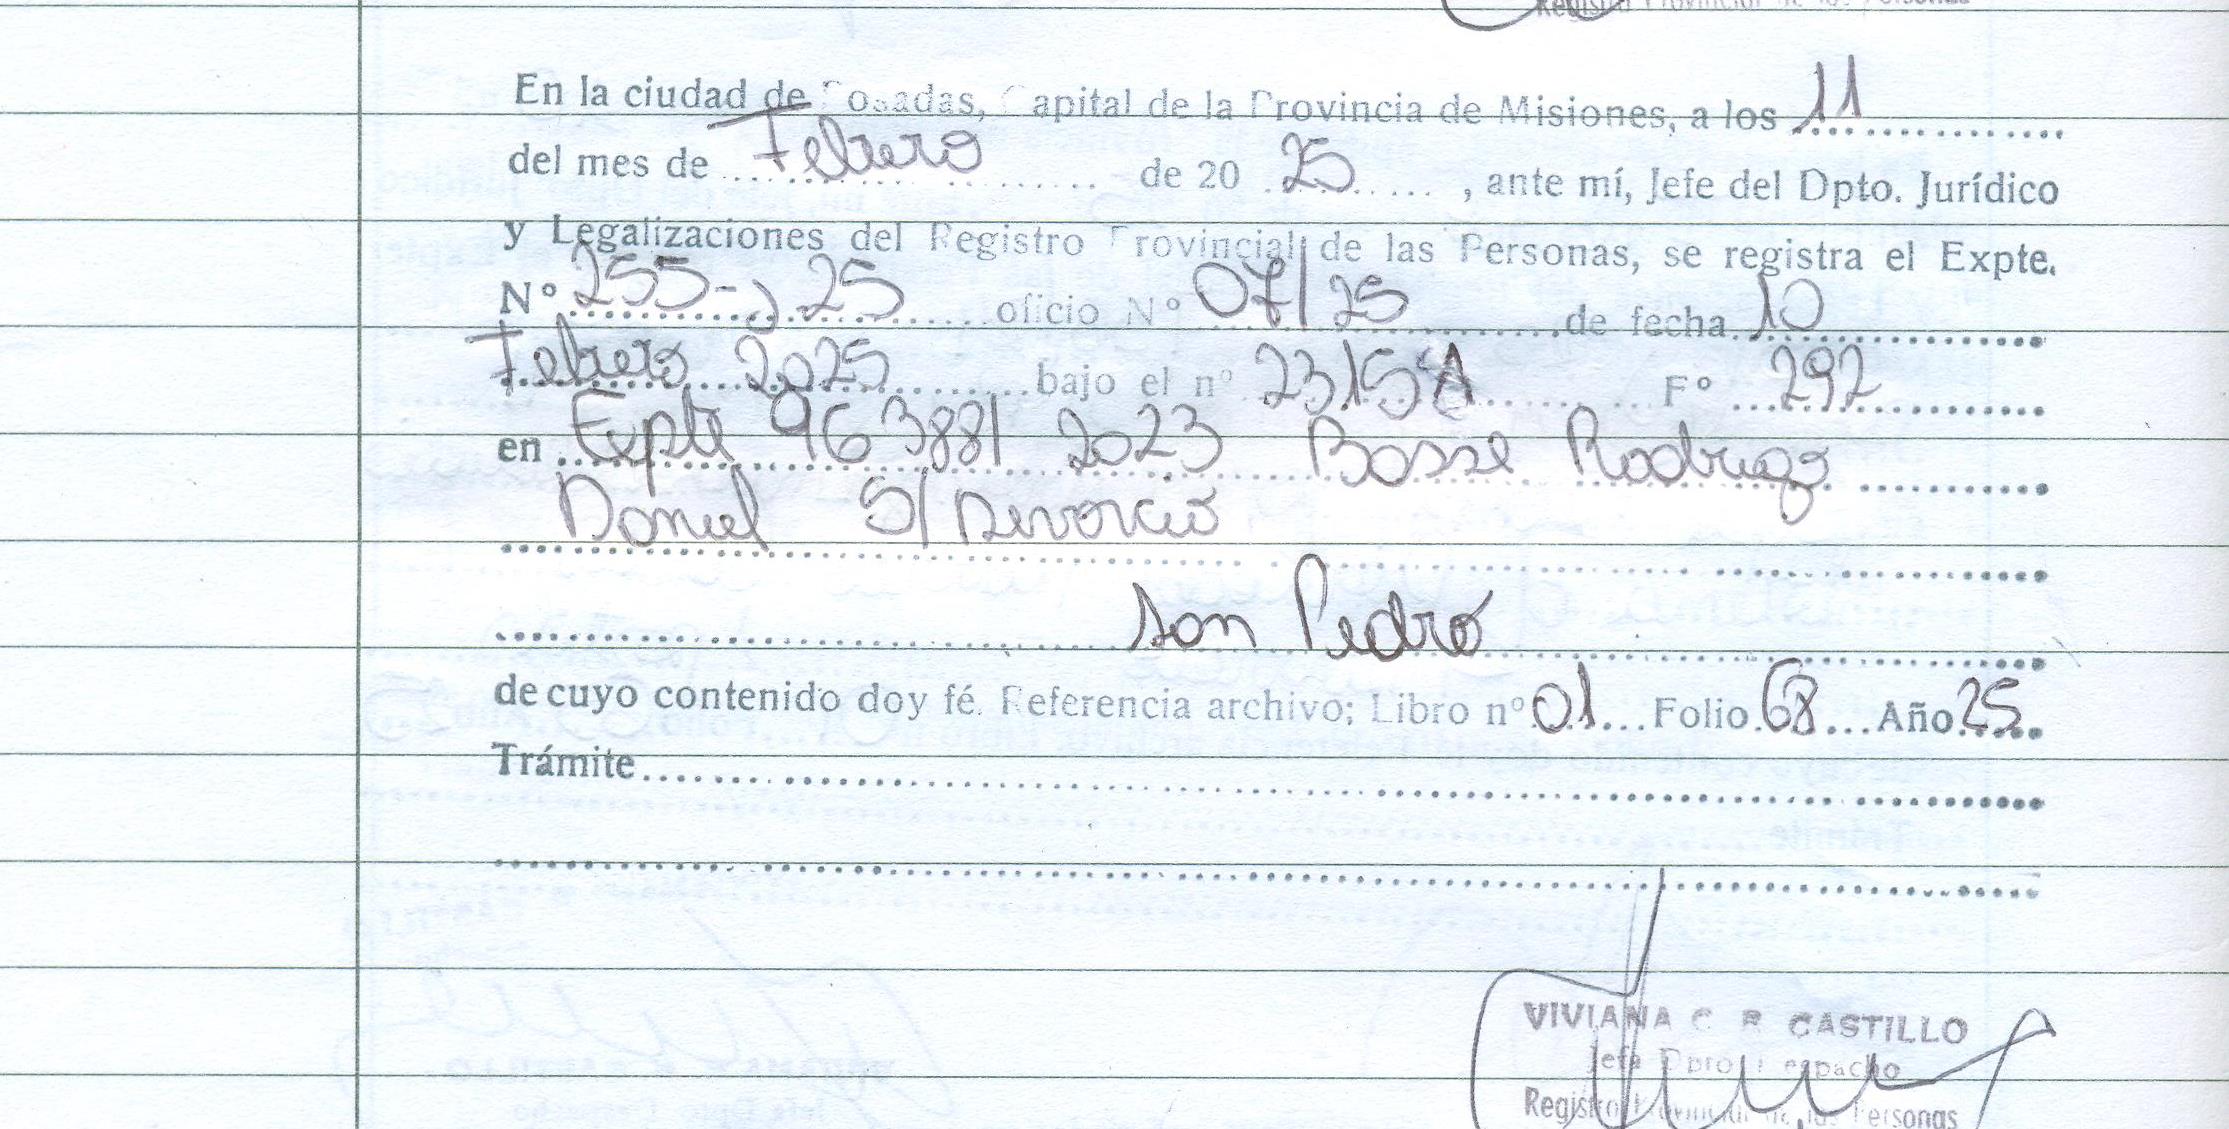 Registro Provincial de las Personas
En la ciudad de Posadas, Capital de la Provincia de Misiones, a los 11
del mes de Febrero de 20 25, ante mí, Jefe del Dpto. Jurídico
y Legalizaciones del Registro Provincial de las Personas, se registra el Expte.
Nº 255-J 25 oficio Nº 07/25 de fecha 10
Febrero 2025 bajo el nº F º 292
en Expte 96388/ 2023 Bosse Rodrigo
Daniel S/ Divorcio
San Pedro
de cuyo contenido doy fé. Referencia archivo; Libro nº 01 Folio 68 Año 25
Trámite
VIVIANA C. R. CASTILLO
Jefa Dpto Despacho
Registro Provincial de las Personas